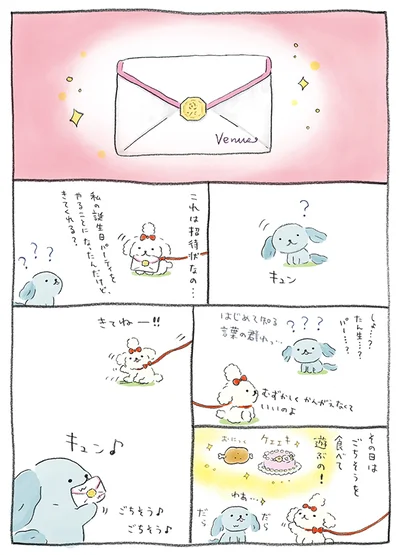 Venus
キュン
? ? ?
これは招待状なの…
私の誕生日パーティを
やることになったんだけど、
きてくれる?
? ? ?
しょ…?
たん生…?
パー…?
? ? ?
はじめて知る
言葉の群れ…
むずかしく かんがえなくて
いいのよ
きてねー!!
その日は
ごちそうを
食べて
遊ぶの!
おにっく
ケェェキ
わぁ…
だら
だら
キュン♪
ごちそう♪
ごちそう♪